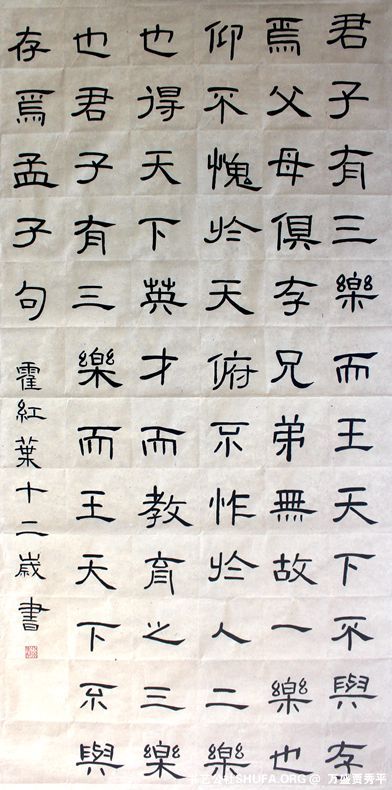 君子有三樂而王天下不與存
焉父母俱存兄弟無故一樂也
仰不愧於天俯不怍於人二樂
也得天下英才而教育之三樂
也君子有三樂而王天下不與
存焉孟子句 霍紅葉十二歲書
SHUFA.ORG @ 万盛贾秀平